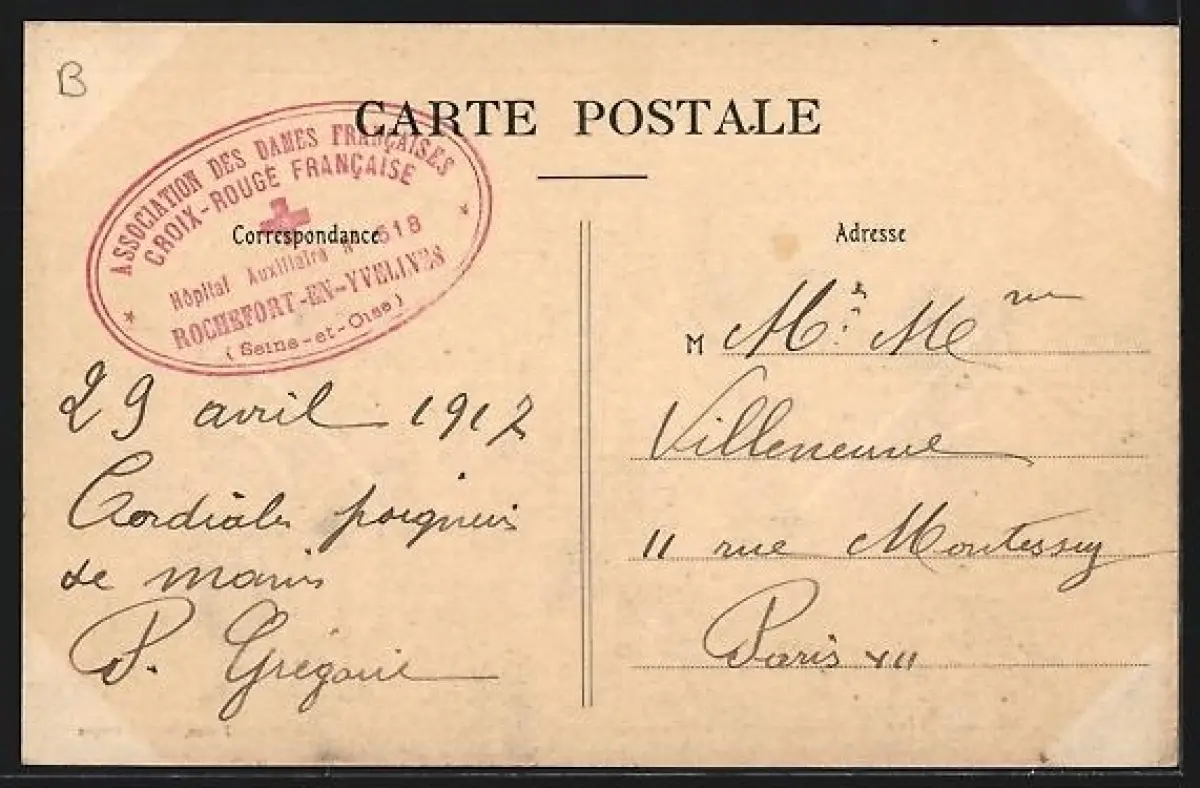 B
CARTE POSTALE
ASSOCIATION DES DAMES FRANÇAISES
CROIX-ROUGE FRANÇAISE
Hôpital Auxiliaire N° 518
ROCHEFORT-EN-YVELINES
(Seine-et-Oise)
Correspondance
29 avril 1917
Cordiales poignées
de mains
P. Grégoire
Adresse
M Mr & Mme
Villeneuve
11 rue Montessuy
Paris